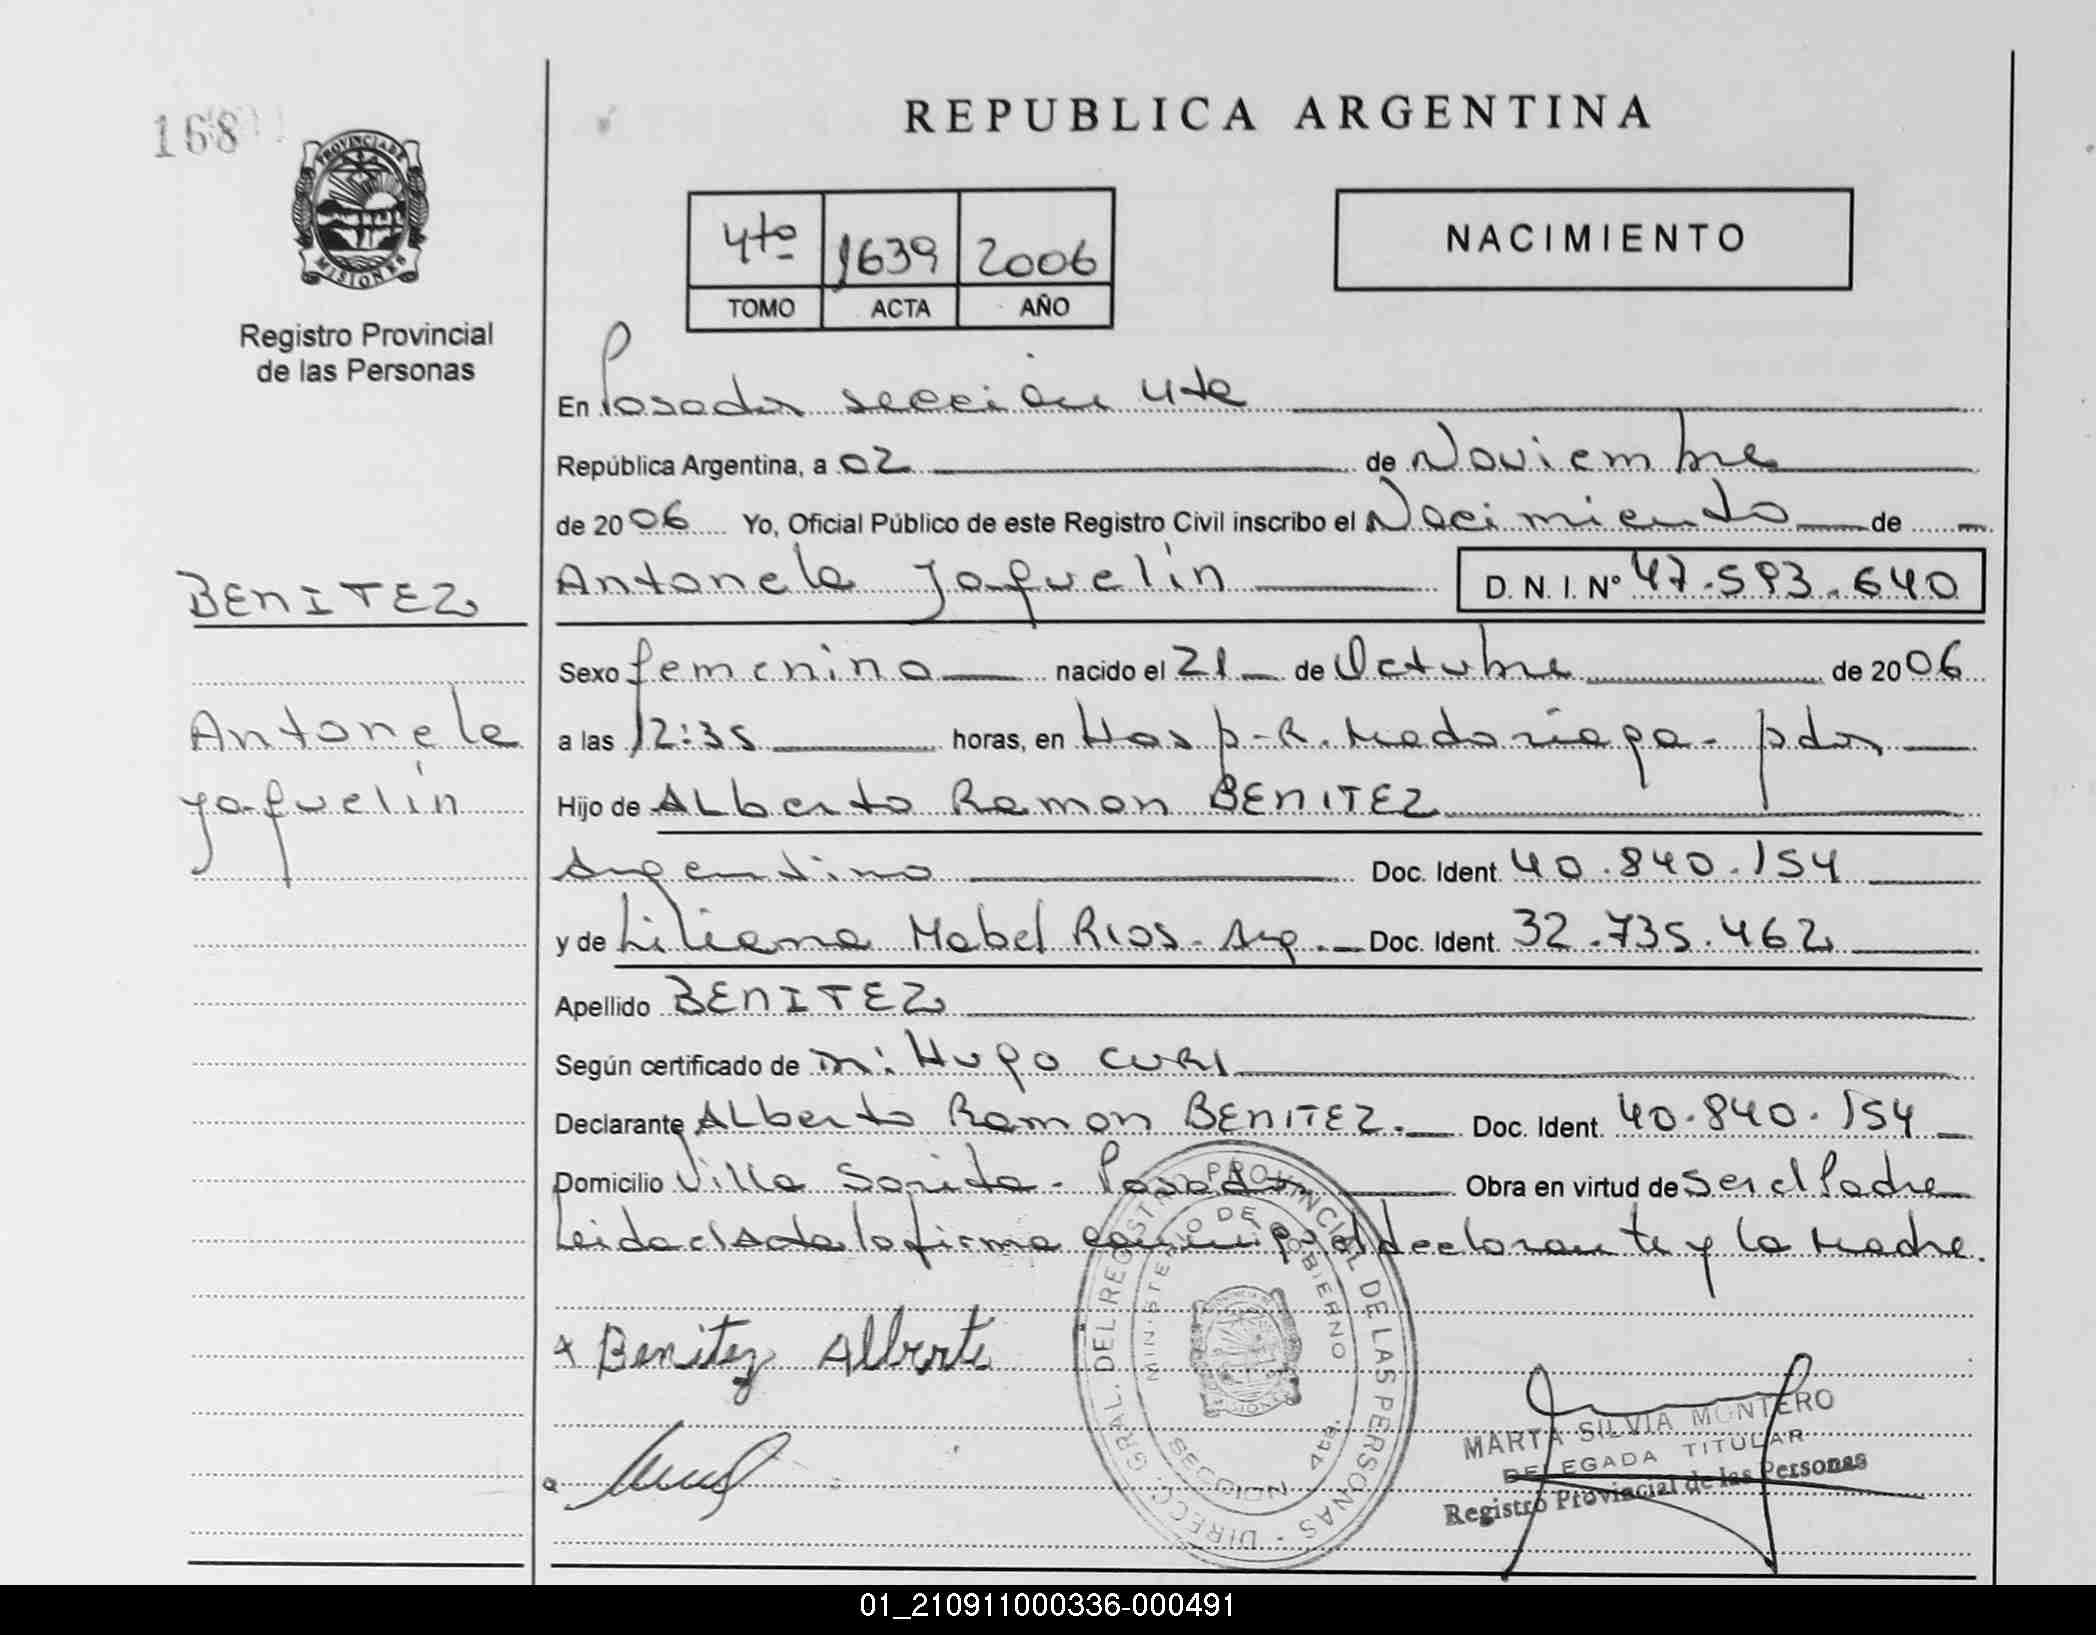 REPUBLICA ARGENTINA
168
PROVINCIA DE
MISIONES
Registro Provincial
de las Personas
4to 1639 2006
TOMO ACTA AÑO
NACIMIENTO
En Posadas sección 4ta
República Argentina, a 02 de Noviembre
de 2006 Yo, Oficial Público de este Registro Civil inscribo el Nacimiento de
BENITEZ
Antonela Jaquelin D. N. I. Nº 47.593.640
Sexo femenino nacido el 21 de Octubre de 2006
Antonela
a las 12:35 horas, en Hosp. R. Madariaga - pdas
Jaquelin
Hijo de Alberto Ramon BENITEZ
Argentino Doc. Ident. 40.840.154
y de Liliana Mabel RIOS. Arg. Doc. Ident. 32.735.462
Apellido BENITEZ
Según certificado de m: Hugo CURI
Declarante Alberto Ramon BENITEZ. Doc. Ident. 40.840.154
Domicilio Villa Sarita - Posadas Obra en virtud de Ser el Padre
Leida el Acta la firma conmigo el declarante y la Madre.
Benitez Alberto
DIRECC. GRAL. DEL REGISTRO PROVINCIAL DE LAS PERSONAS -
MINISTERIO DE GOBIERNO
SECCION 4ta.
MARTA SILVIA MONTERO
DELEGADA TITULAR
Registro Provincial de las Personas
01_210911000336-000491